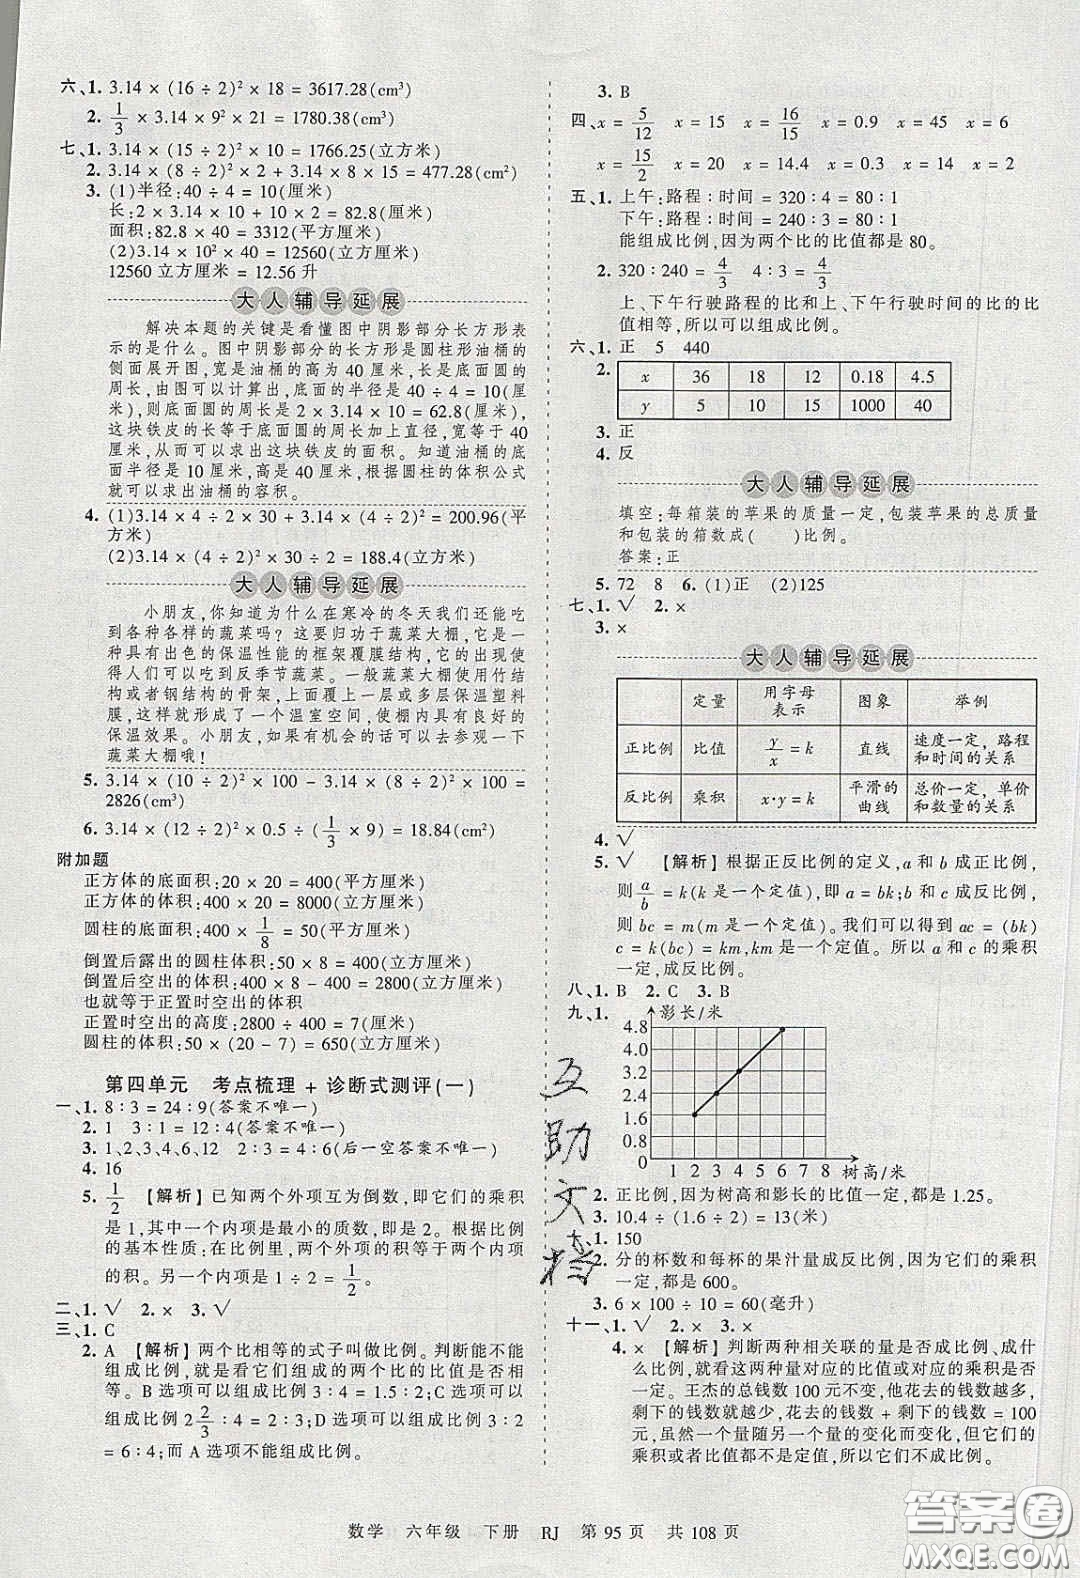 六、1. 3.14 × (16 ÷ 2)² × 18 = 3617.28(cm³)
2. 1/3 × 3.14 × 9² × 21 = 1780.38(cm³)
七、1. 3.14 × (15 ÷ 2)² × 10 = 1766.25(立方米)
2. 3.14 × (8 ÷ 2)² × 2 + 3.14 × 8 × 15 = 477.28(cm²)
3. (1)半径:40 ÷ 4 = 10(厘米)
长:2 × 3.14 × 10 + 10 × 2 = 82.8(厘米)
面积:82.8 × 40 = 3312(平方厘米)
(2)3.14 × 10² × 40 = 12560(立方厘米)
12560 立方厘米 = 12.56 升
大人辅导延展
解决本题的关键是看懂图中阴影部分长方形表
示的是什么。图中阴影部分的长方形是圆柱形油桶的
侧面展开图,油桶的高为 40 厘米,长是底面圆的
周长,由图可以计算出,底面的半径是 40 ÷ 4 = 10(厘
米),则底面圆的周长是 2 × 3.14 × 10 = 62.8(厘米),
这块铁皮的长等于底面圆的周长加上直径,宽等于 40
厘米,从而可以求出这块铁皮的面积。知道油桶的底
面半径是 10 厘米,高是 40 厘米,根据圆柱的体积公式
就可以求出油桶的容积。
4. (1)3.14 × 4 ÷ 2 × 30 + 3.14 × (4 ÷ 2)² = 200.96(平
方米)
(2)3.14 × (4 ÷ 2)² × 30 ÷ 2 = 188.4(立方米)
大人辅导延展
小朋友,你知道为什么在寒冷的冬天我们还能吃
到各种各样的蔬菜吗？这要归功于蔬菜大棚,它是一
种具有出色的保温性能的框架覆膜结构,它的出现使
得人们可以吃到反季节蔬菜。一般蔬菜大棚使用竹结
构或者钢结构的骨架,上面覆上一层或多层保温塑料
膜,这样就形成了一个温室空间,使棚内具有良好的
保温效果。小朋友,如果有机会的话可以去参观一下
蔬菜大棚哦！
5. 3.14 × (10 ÷ 2)² × 100 - 3.14 × (8 ÷ 2)² × 100 =
2826(cm³)
6. 3.14 × (12 ÷ 2)² × 0.5 ÷ (1/3 × 9) = 18.84(cm²)
附加题
正方体的底面积:20 × 20 = 400(平方厘米)
正方体的体积:400 × 20 = 8000(立方厘米)
圆柱的底面积:400 × 1/8 = 50(平方厘米)
倒置后露出的圆柱体积:50 × 8 = 400(立方厘米)
倒置后空出的体积:400 × 8 - 400 = 2800(立方厘米)
也就等于正置时空出的体积
正置时空出的高度:2800 ÷ 400 = 7(厘米)
圆柱的体积:50 × (20 - 7) = 650(立方厘米)
第四单元 考点梳理 + 诊断式测评(一)
一、1. 8∶3 = 24∶9(答案不唯一)
2. 1 3∶1 = 12∶4(答案不唯一)
3. 1、2、3、4、6、12 2∶3 = 4∶6(后一空答案不唯一)
4. 16
5. 1/2 [解析] 已知两个外项互为倒数,即它们的乘积
是 1,其中一个内项是最小的质数,即是 2。根据比例
的基本性质:在比例里,两个外项的积等于两个内项
的积。可知,另一个内项是 1 ÷ 2 = 1/2。
二、1. √ 2. × 3. √
三、1. C
2. A [解析] 两个比相等的式子叫做比例。判断能不能
组成比例,就是看它们组成的两个比的比值是否相
等。B 选项可以组成比例 3∶4 = 1.5∶2;C 选项可以
组成比例 2 2/3∶4 = 2∶3;D 选项可以组成比例 3∶2
= 6∶4;而 A 选项不能组成比例。
3. B
四、x = 5/12 x = 15 x = 16/15 x = 0.9 x = 45 x = 6
x = 15/2 x = 20 x = 14.4 x = 0.3 x = 14 x = 2
五、1. 上午:路程∶时间 = 320∶4 = 80∶1
下午:路程∶时间 = 240∶3 = 80∶1
能组成比例,因为两个比的比值都是 80。
2. 320∶240 = 4/3 4∶3 = 4/3
上、下午行驶路程的比和上、下午行驶时间的比的比
值相等,所以可以组成比例。
六、1. 正 5 440
2. x 36 18 12 0.18 4.5
y 5 10 15 1000 40
3. 正
4. 反
大人辅导延展
填空:每箱装的苹果的质量一定,包装苹果的总质量
和包装的箱数成( )比例。
答案:正
5. 72 8 6. (1)正 (2)125
七、1. √ 2. ×
3. ×
大人辅导延展
定量 用字母表示 图象 举例
正比例 比值 y/x = k 直线 速度一定,路程和时间的关系
反比例 乘积 x·y = k 平滑的曲线 总价一定,单价和数量的关系
4. √
5. √ [解析] 根据正反比例的定义,a 和 b 成正比例,
则 a/b = k(k 是一个定值),即 a = bk;b 和 c 成反比例,
则 bc = m(m 是一个定值)。我们可以得到 ac = (bk)
c = k(bc) = km,km 是一个定值。所以 a 和 c 的乘积
一定,成反比例。
八、1. B 2. C 3. B
九、1. 影长/米
4.8
4.0
3.2
2.4
1.6
0.8
0 1 2 3 4 5 6 7 8 树高/米
2. 正比例,因为树高和影长的比值一定,都是 1.25。
3. 10.4 ÷ (1.6 ÷ 2) = 13(米)
十、1. 150
2. 分的杯数和每杯的果汁量成反比例,因为它们的乘积
一定,都是 600。
3. 6 × 100 ÷ 10 = 60(毫升)
十一、1. √ 2. × 3. ×
4. × [解析] 判断两种相关联的量是否成比例,成什
么比例,就看这两种量对应的比值或对应的乘积是否
一定。王杰的总钱数 100 元不变,他花去的钱数越多,
剩下的钱数就越少,花去的钱数 + 剩下的钱数 = 100
元,虽然一个量随另一个量的变化而变化,但它们的
乘积或者比值都不是定值,所以它们不成比例。
互助文档
数学 六年级 下册 RJ 第 95 页 共 108 页
答案圈
MXQE.COM